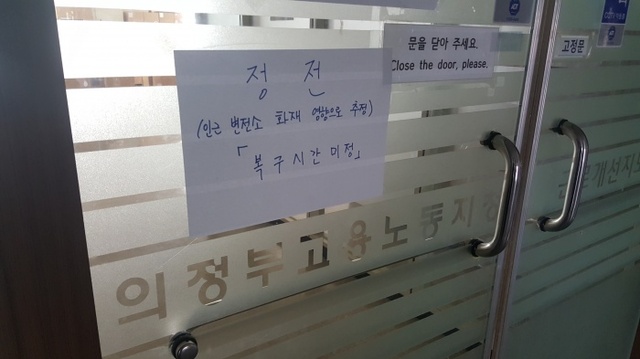 정전
(인근 변전소 화재 영향으로 추정)
「복구시간 미정」
문을 닫아 주세요.
Close the door, please.
고정문
의정부고용노동지청